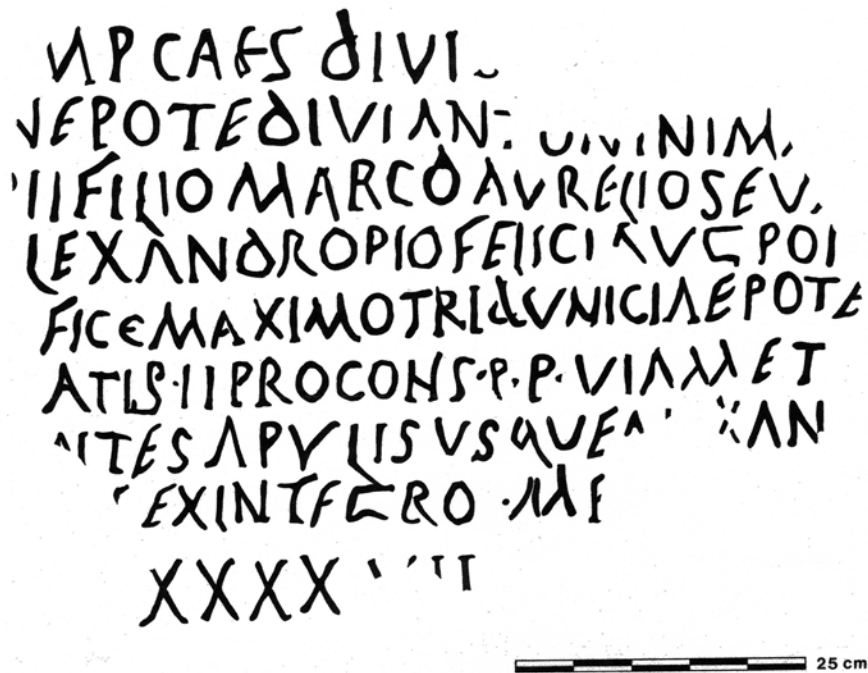 MP CAES DIVI
NEPOTE DIVI AN
FILIO MARCO AVRELIO SEV
LEXANDRO PIO FELICI AVG PO
FICE MAXIMO TRIBVNICIAE POTE
ATIS·II PROCONS·P·P·VIAM ET
NTES APVLIS VSQVE
EX INTEGRO
XXXX
25 cm